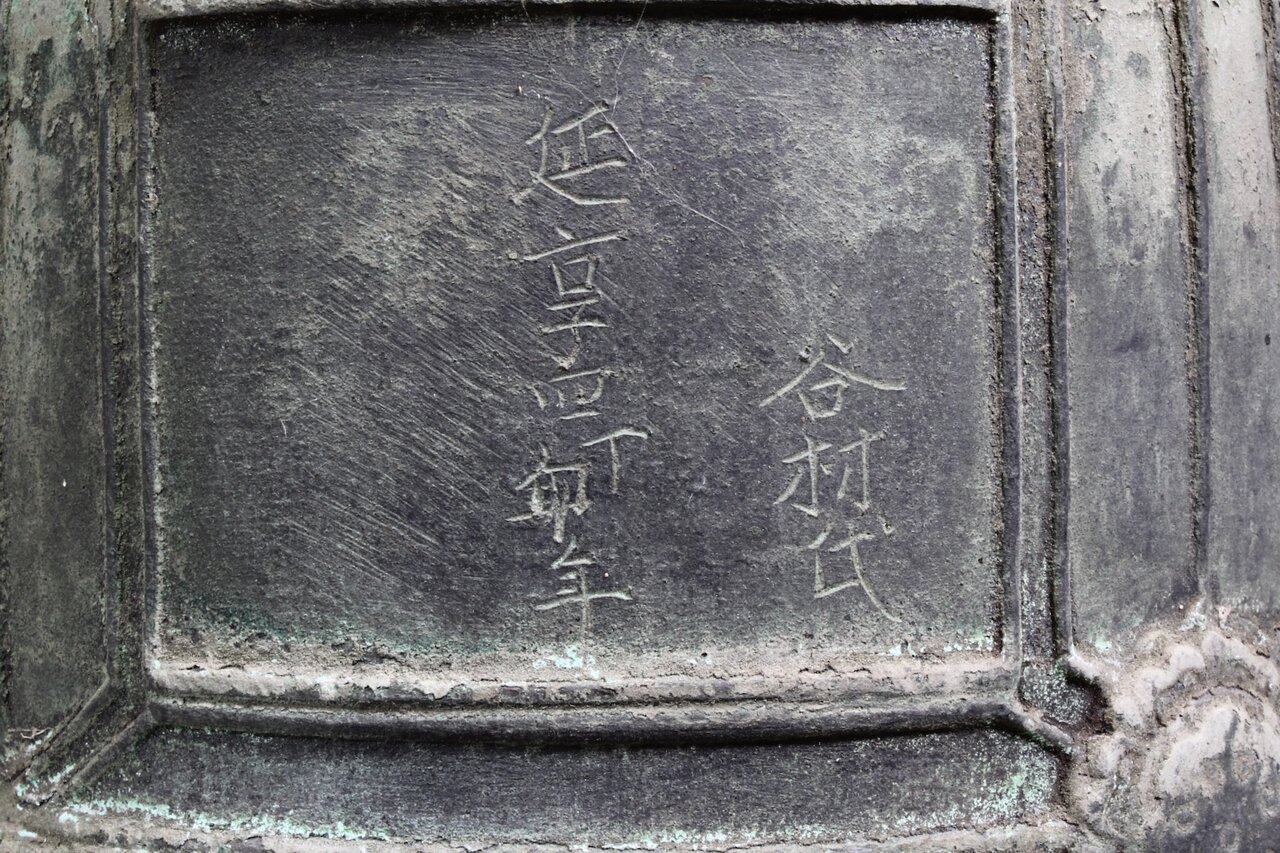 谷村氏
延享四丁卯年